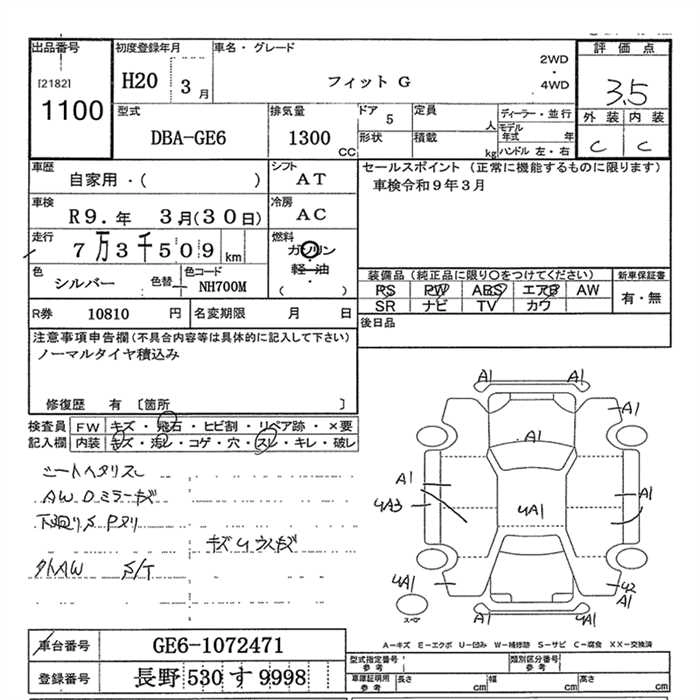 出品番号 初度登録年月 車名・グレード 評価点
[2182] 1100 H20 3月 フィット G 2WD・4WD 3.5
型式 排気量 ドア 定員 ディーラー・並行 外装 内装
DBA-GE6 1300cc 5 人 モデル年式 年 C C
形状 積載 kg ハンドル 左・右
車歴 シフト セールスポイント (正常に機能するものに限ります)
自家用・( ) AT 車検令和9年3月
車検 冷房
R9.年 3月(30日) AC
走行 燃料
7万3千509km ガソリン・軽油・( )
色 色替 色コード 装備品(純正品に限り○をつけてください) 新車保証書
シルバー NH700M RS PW ABS エアB AW 有・無
SR ナビ TV カワ
R券 10810円 名変期限 月 日 後日品
注意事項申告欄(不具合内容等は具体的に記入して下さい)
ノーマルタイヤ積込み
修復歴 有 〔箇所 〕
検査員 FW キズ・飛石・ヒビ割・リペア跡・×要
記入欄 内装 キズ・汚レ・コゲ・穴・スレ・キレ・破レ
シートヘタリスレ
AW Dミラーキズ
下廻りS Pヌリ
キズUウスキズ
外AW S/T
A1 A1
A1
A1
A1 A1
4A3 4A1
4A1 42
A1
A1 A1
スペアー
A-キズ E-エクボ U-凹み W-補修跡 S-サビ C-腐食 XX-交換済
車台番号 GE6-1072471 型式指定番号 参考 類別区分番号 参考
登録番号 長野 530 す 9998 車庫証明用 参考 長さ cm 幅 cm 高さ cm